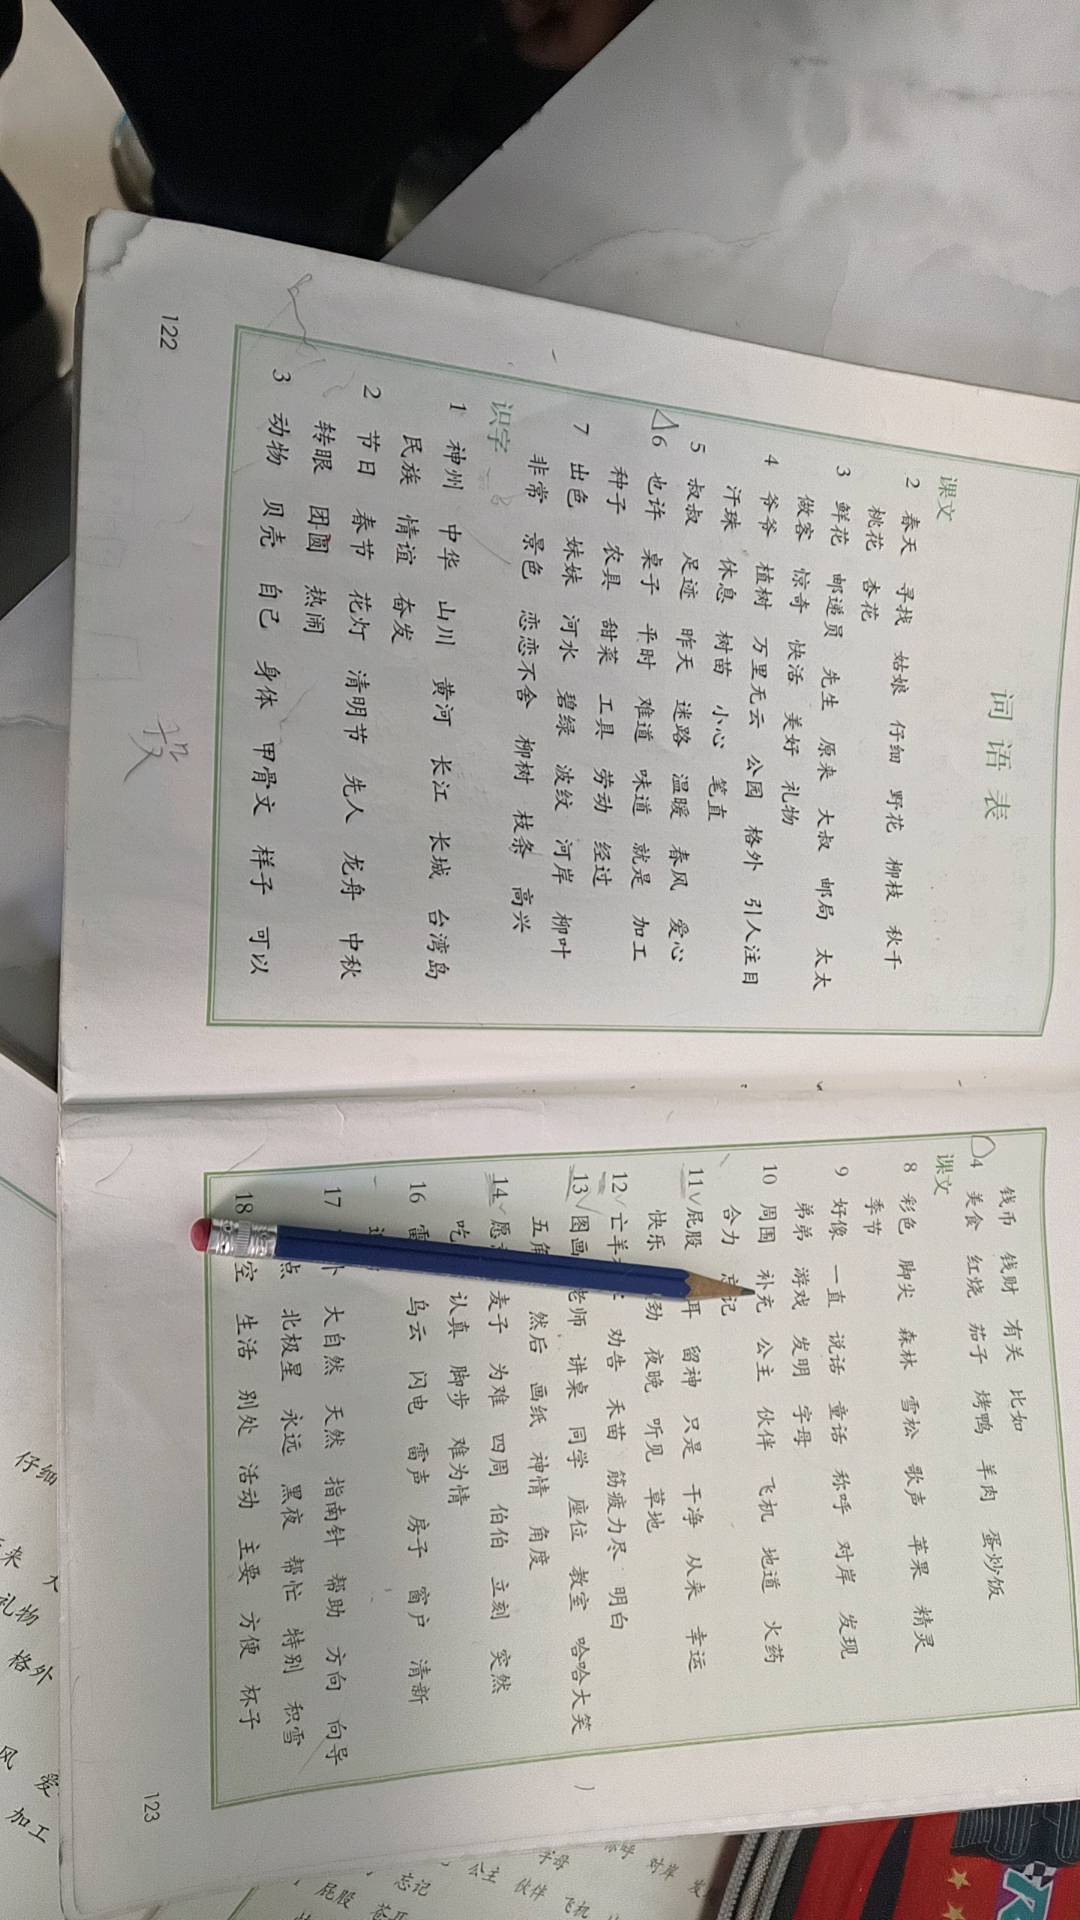 词语表
课文
2 春天 寻找 姑娘 仔细 野花 柳枝 秋千
桃花 杏花
3 鲜花 邮递员 先生 原来 大叔 邮局 太太
做客 惊奇 快活 美好 礼物
4 爷爷 植树 万里无云 公园 格外 引人注目
汗珠 休息 树苗 小心 笔直
5 叔叔 足迹 昨天 迷路 温暖 春风 爱心
6 也许 桌子 平时 难道 味道 就是 加工
种子 农具 甜菜 工具 劳动 经过
7 出色 妹妹 河水 碧绿 波纹 河岸 柳叶
非常 景色 恋恋不舍 柳树 枝条 高兴
识字
1 神州 中华 山川 黄河 长江 长城 台湾岛
民族 情谊 奋发
2 节日 春节 花灯 清明节 先人 龙舟 中秋
转眼 团圆 热闹
3 动物 贝壳 自己 身体 甲骨文 样子 可以
122
钱币 钱财 有关 比如
4 美食 红烧 茄子 烤鸭 羊肉 蛋炒饭
课文
8 彩色 脚尖 森林 雪松 歌声 苹果 精灵
季节
9 好像 一直 说话 童话 称呼 对岸 发现
弟弟 游戏 发明 字母
10 周围 补充 公主 伙伴 飞机 地道 火药
合力 忘记
11 屁股 耳 留神 只是 干净 从来 幸运
快乐 劲 夜晚 听见 草地
12 亡羊 劝告 禾苗 筋疲力尽 明白
13 图画 老师 讲桌 同学 座位 教室 哈哈大笑
五角 然后 画纸 神情 角度
14 愿 麦子 为难 四周 伯伯 立刻 突然
吃 认真 脚步 难为情
16 雷 乌云 闪电 雷声 房子 窗户 清新
17 大自然 天然 指南针 帮助 方向 向导
点 北极星 永远 黑夜 帮忙 特别 积雪
18 空 生活 别处 活动 主要 方便 杯子
123
仔细
来
礼物
格外
风
加工
字母 称呼 对岸 发
忘记 公主 伙伴 飞机
屁股